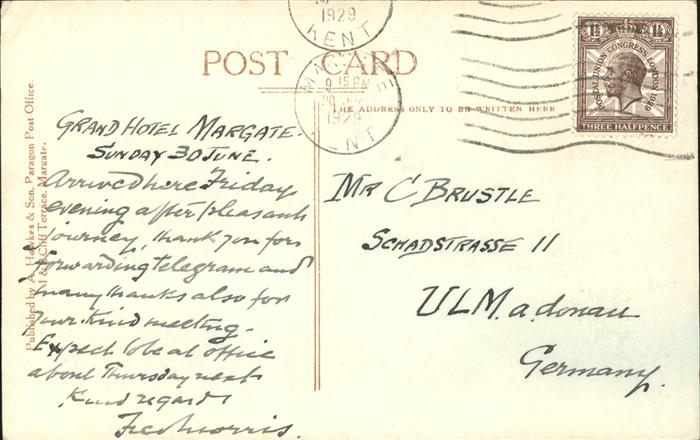 1929
KENT
POST CARD
MARGATE
9 15 PM
1929
KENT
THE ADDRESS ONLY TO BE WRITTEN HERE
1½ 1½
POSTAL UNION CONGRESS LONDON 1929
THREE HALFPENCE
Published by A. Hawkes & Son, Paragon Post Office.
Cliff Terrace, Margate.
GRAND HOTEL MARGATE.
SUNDAY 30 JUNE.
Arrived here Friday
evening after pleasant
journey, thank you for
forwarding telegram and
many thanks also for
your kind meeting.
Expect to be at office
about Thursday next
Kind regards
Mr C BRUSTLE
SCHADSTRASSE 11
ULM. a. donau
Germany.